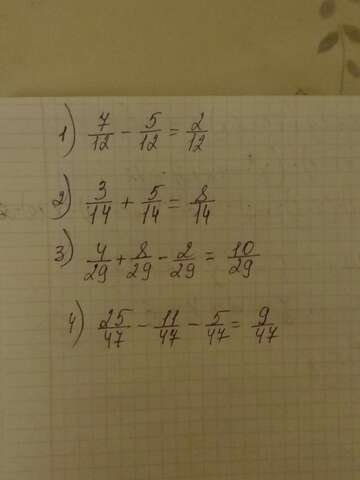 1) 7/12 - 5/12 = 2/12
2) 3/14 + 5/14 = 8/14
3) 4/29 + 8/29 - 2/29 = 10/29
4) 25/47 - 11/47 - 5/47 = 9/47